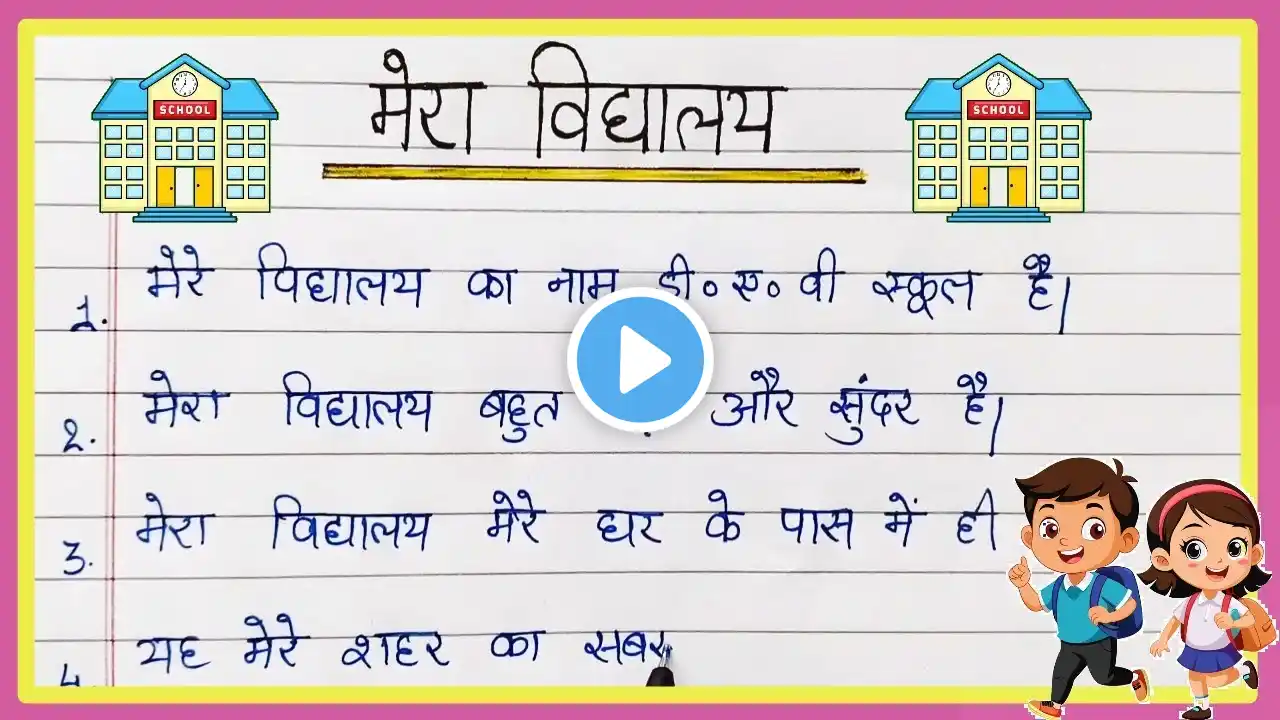 SCHOOL
SCHOOL
मेरा विद्यालय
1. मेरे विद्यालय का नाम डी॰ ए॰ वी स्कूल है।
2. मेरा विद्यालय बहुत और सुंदर है।
3. मेरा विद्यालय मेरे घर के पास में ही
4. यह मेरे शहर का सबस